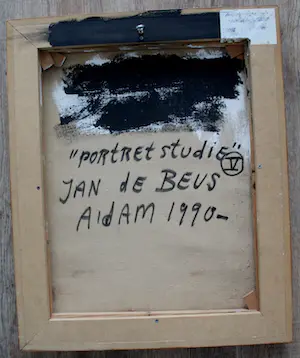 "PORTRET studie" V
JAN de BEUS
A'DAM 1990-